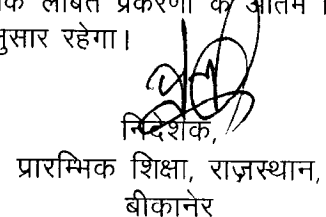 लंबित प्रकरणों के अंतिम
नुसार रहेगा।
निदेशक,
प्रारम्भिक शिक्षा, राजस्थान,
बीकानेर